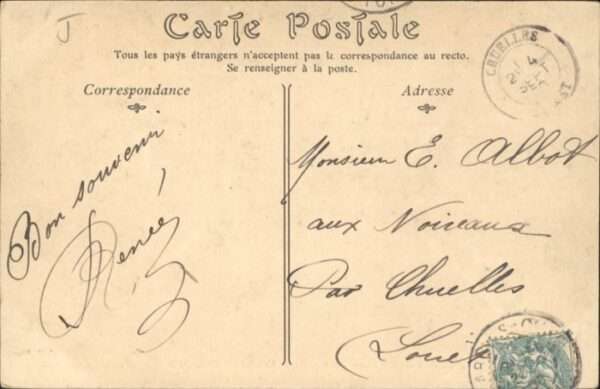 J
Carte Postale
Tous les pays étrangers n'acceptent pas la correspondance au recto.
Se renseigner à la poste.
Correspondance
Adresse
CHUELLES
Bon souvenir
Renée
Monsieur E. Albot
aux Noiseaux
Par Chuelles
Loiret